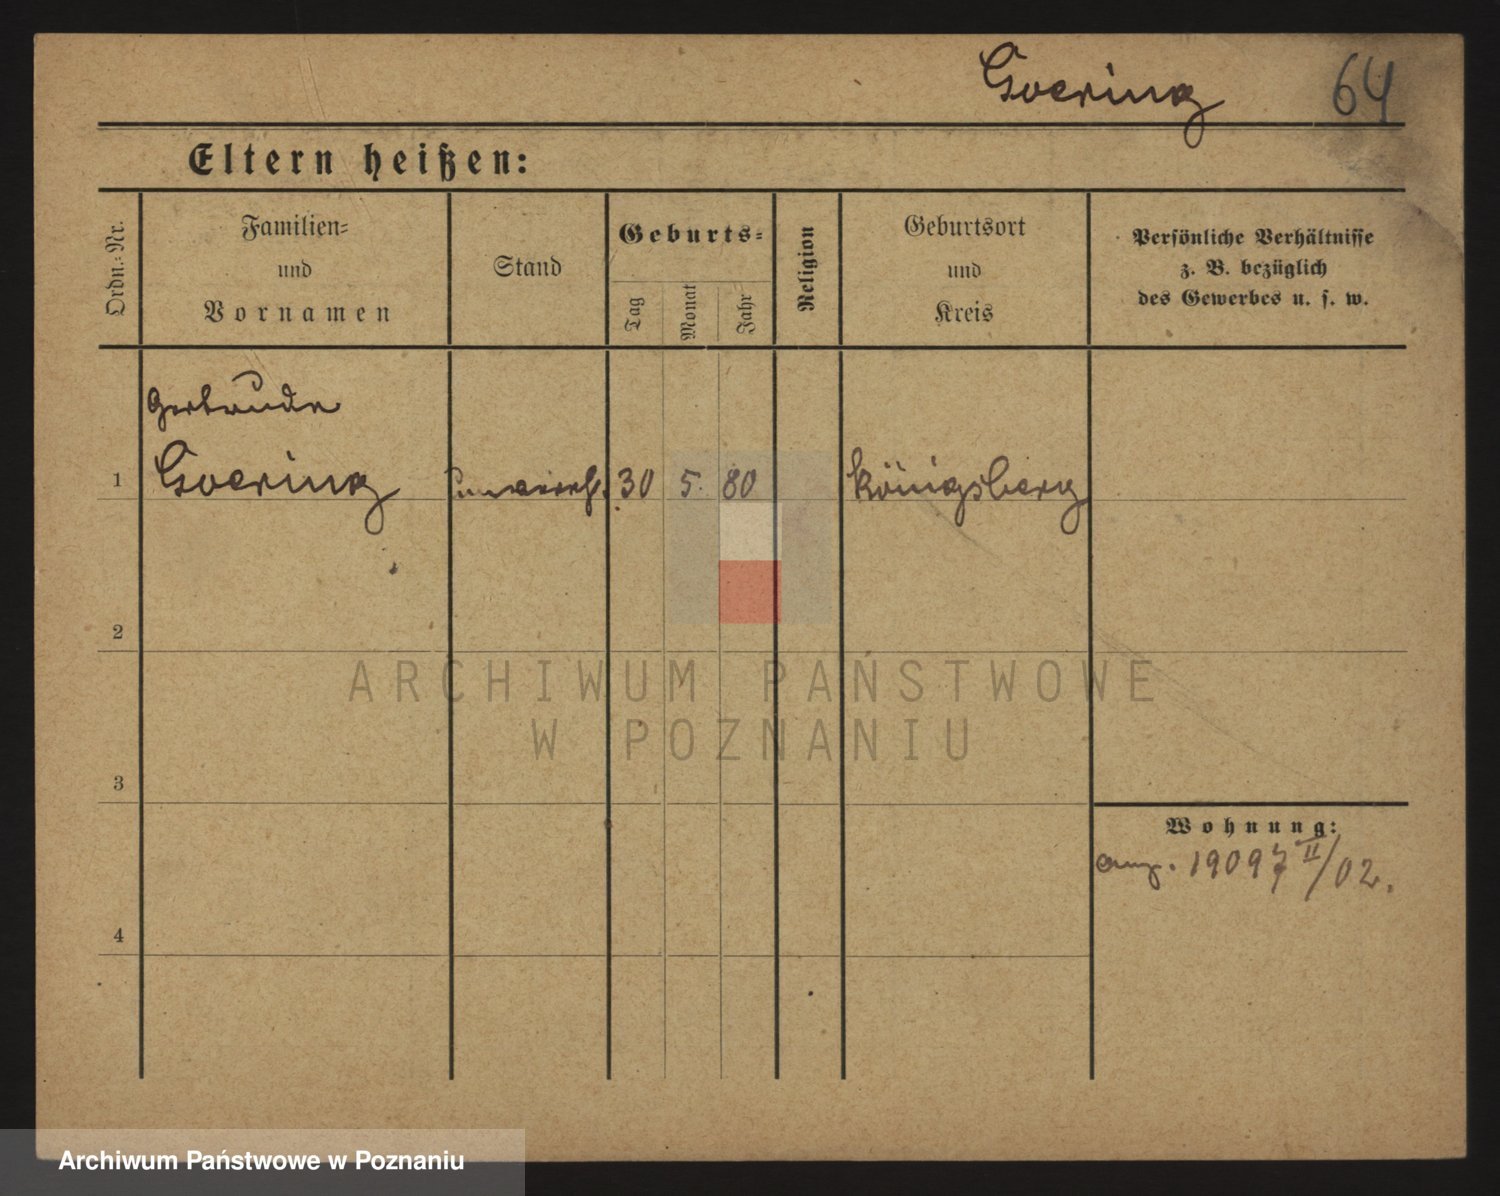 Goering 64
Eltern heißen:
Ordn.-Nr.
Familien-
und
Vornamen
Stand
Geburts-
Tag
Monat
Jahr
Religion
Geburtsort
und
Kreis
Persönliche Verhältnisse
z. B. bezüglich
des Gewerbes u. s. w.
Gertrude
1 Goering 30 5. 80 Königsberg
2
ARCHIWUM PAŃSTWOWE
W POZNANIU
3
Wohnung:
1909 II/02.
4
Archiwum Państwowe w Poznaniu